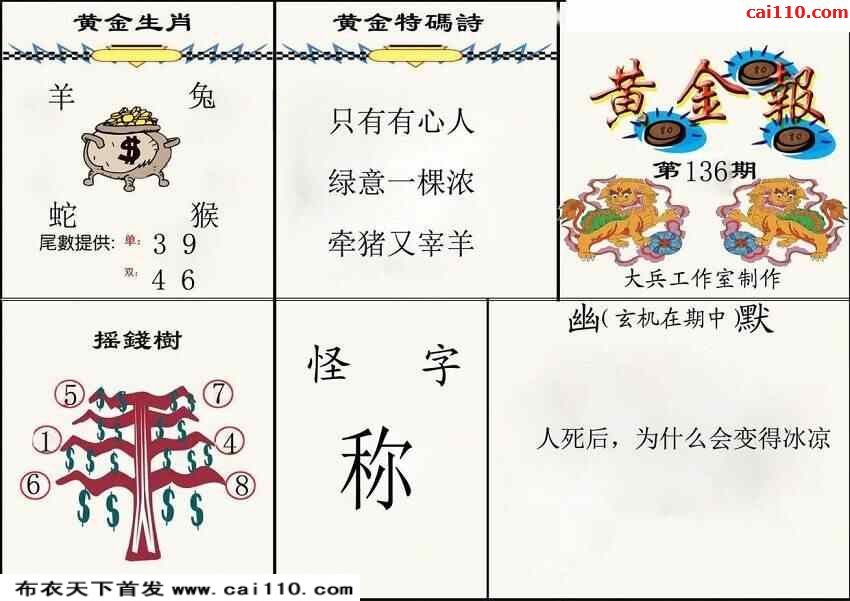 cai110.com
黄金生肖
羊 兔
$
蛇 猴
尾數提供: 单: 3 9
双: 4 6
黄金特碼詩
只有有心人
绿意一棵浓
牵猪又宰羊
黄金報
80
80
80
第136期
大兵工作室制作
摇錢樹
5 7
1 4
6 8
$ $ $ $
$ $ $ $
$ $ $ $ $ $
$ $ $ $
怪字
称
幽(玄机在期中)默
人死后，为什么会变得冰凉
布衣天下首发 www.cai110.com